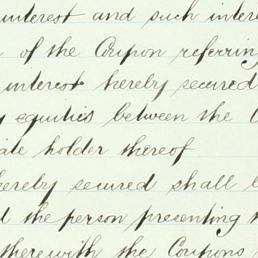 interest and such inter
of the Coupon referring
interest hereby secured
equities between the
ate holder thereof
hereby secured shall
the person presenting
therewith the Coupons